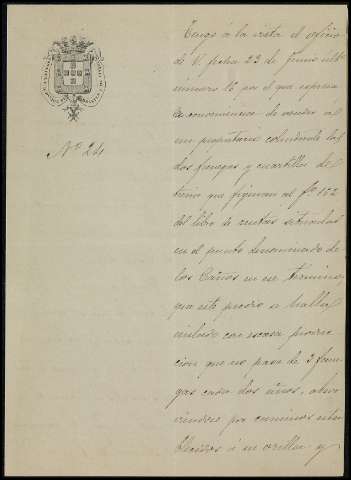 Nº 24
Tengo á la vista el oficio
de V. fecha 23 de Junio ulto
número 16 por el que espresa
la conveniencia de vender á
un propietario colindante las
dos fanegas y cuartillos de
tierra que figuran al fº 102
del libro de rentas situadas
en el punto denominado de
los Caños en ese termino,
que este predio se halla
incluido con escasa produc-
cion que no pasa de 3 fane-
gas cada dos años, atra
vesado por caminos esta
blecidos á su orillas y